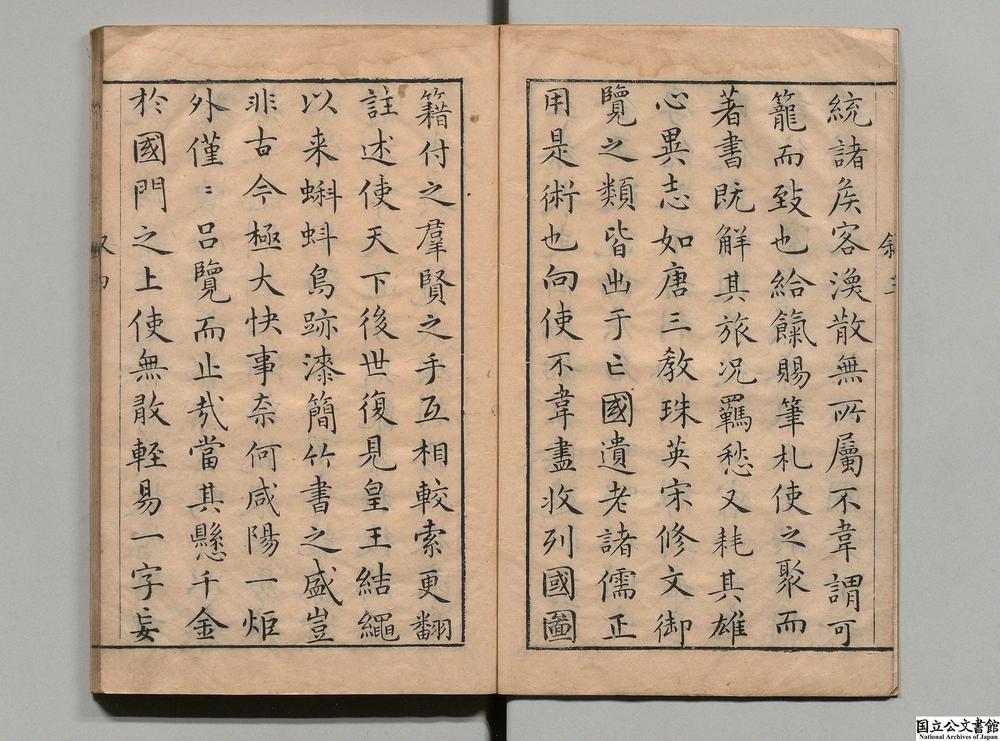 統諸矦客渙散無所屬不韋謂可
籠而致也給餼賜筆札使之聚而
著書既解其旅况羈愁又耗其雄
心異志如唐三教珠英宋修文御
覽之類皆出于亡國遺老諸儒正
用是術也向使不韋盡收列國圖
籍付之羣賢之手互相較索更翻
註述使天下後世復見皇王結繩
以来蝌蚪鳥跡漆簡竹書之盛豈
非古今極大快事奈何咸陽一炬
外僅〻呂覽而止㢤當其懸千金
於國門之上使無敢輕易一字妄
叙三
国立公文書館
National Archives of Japan